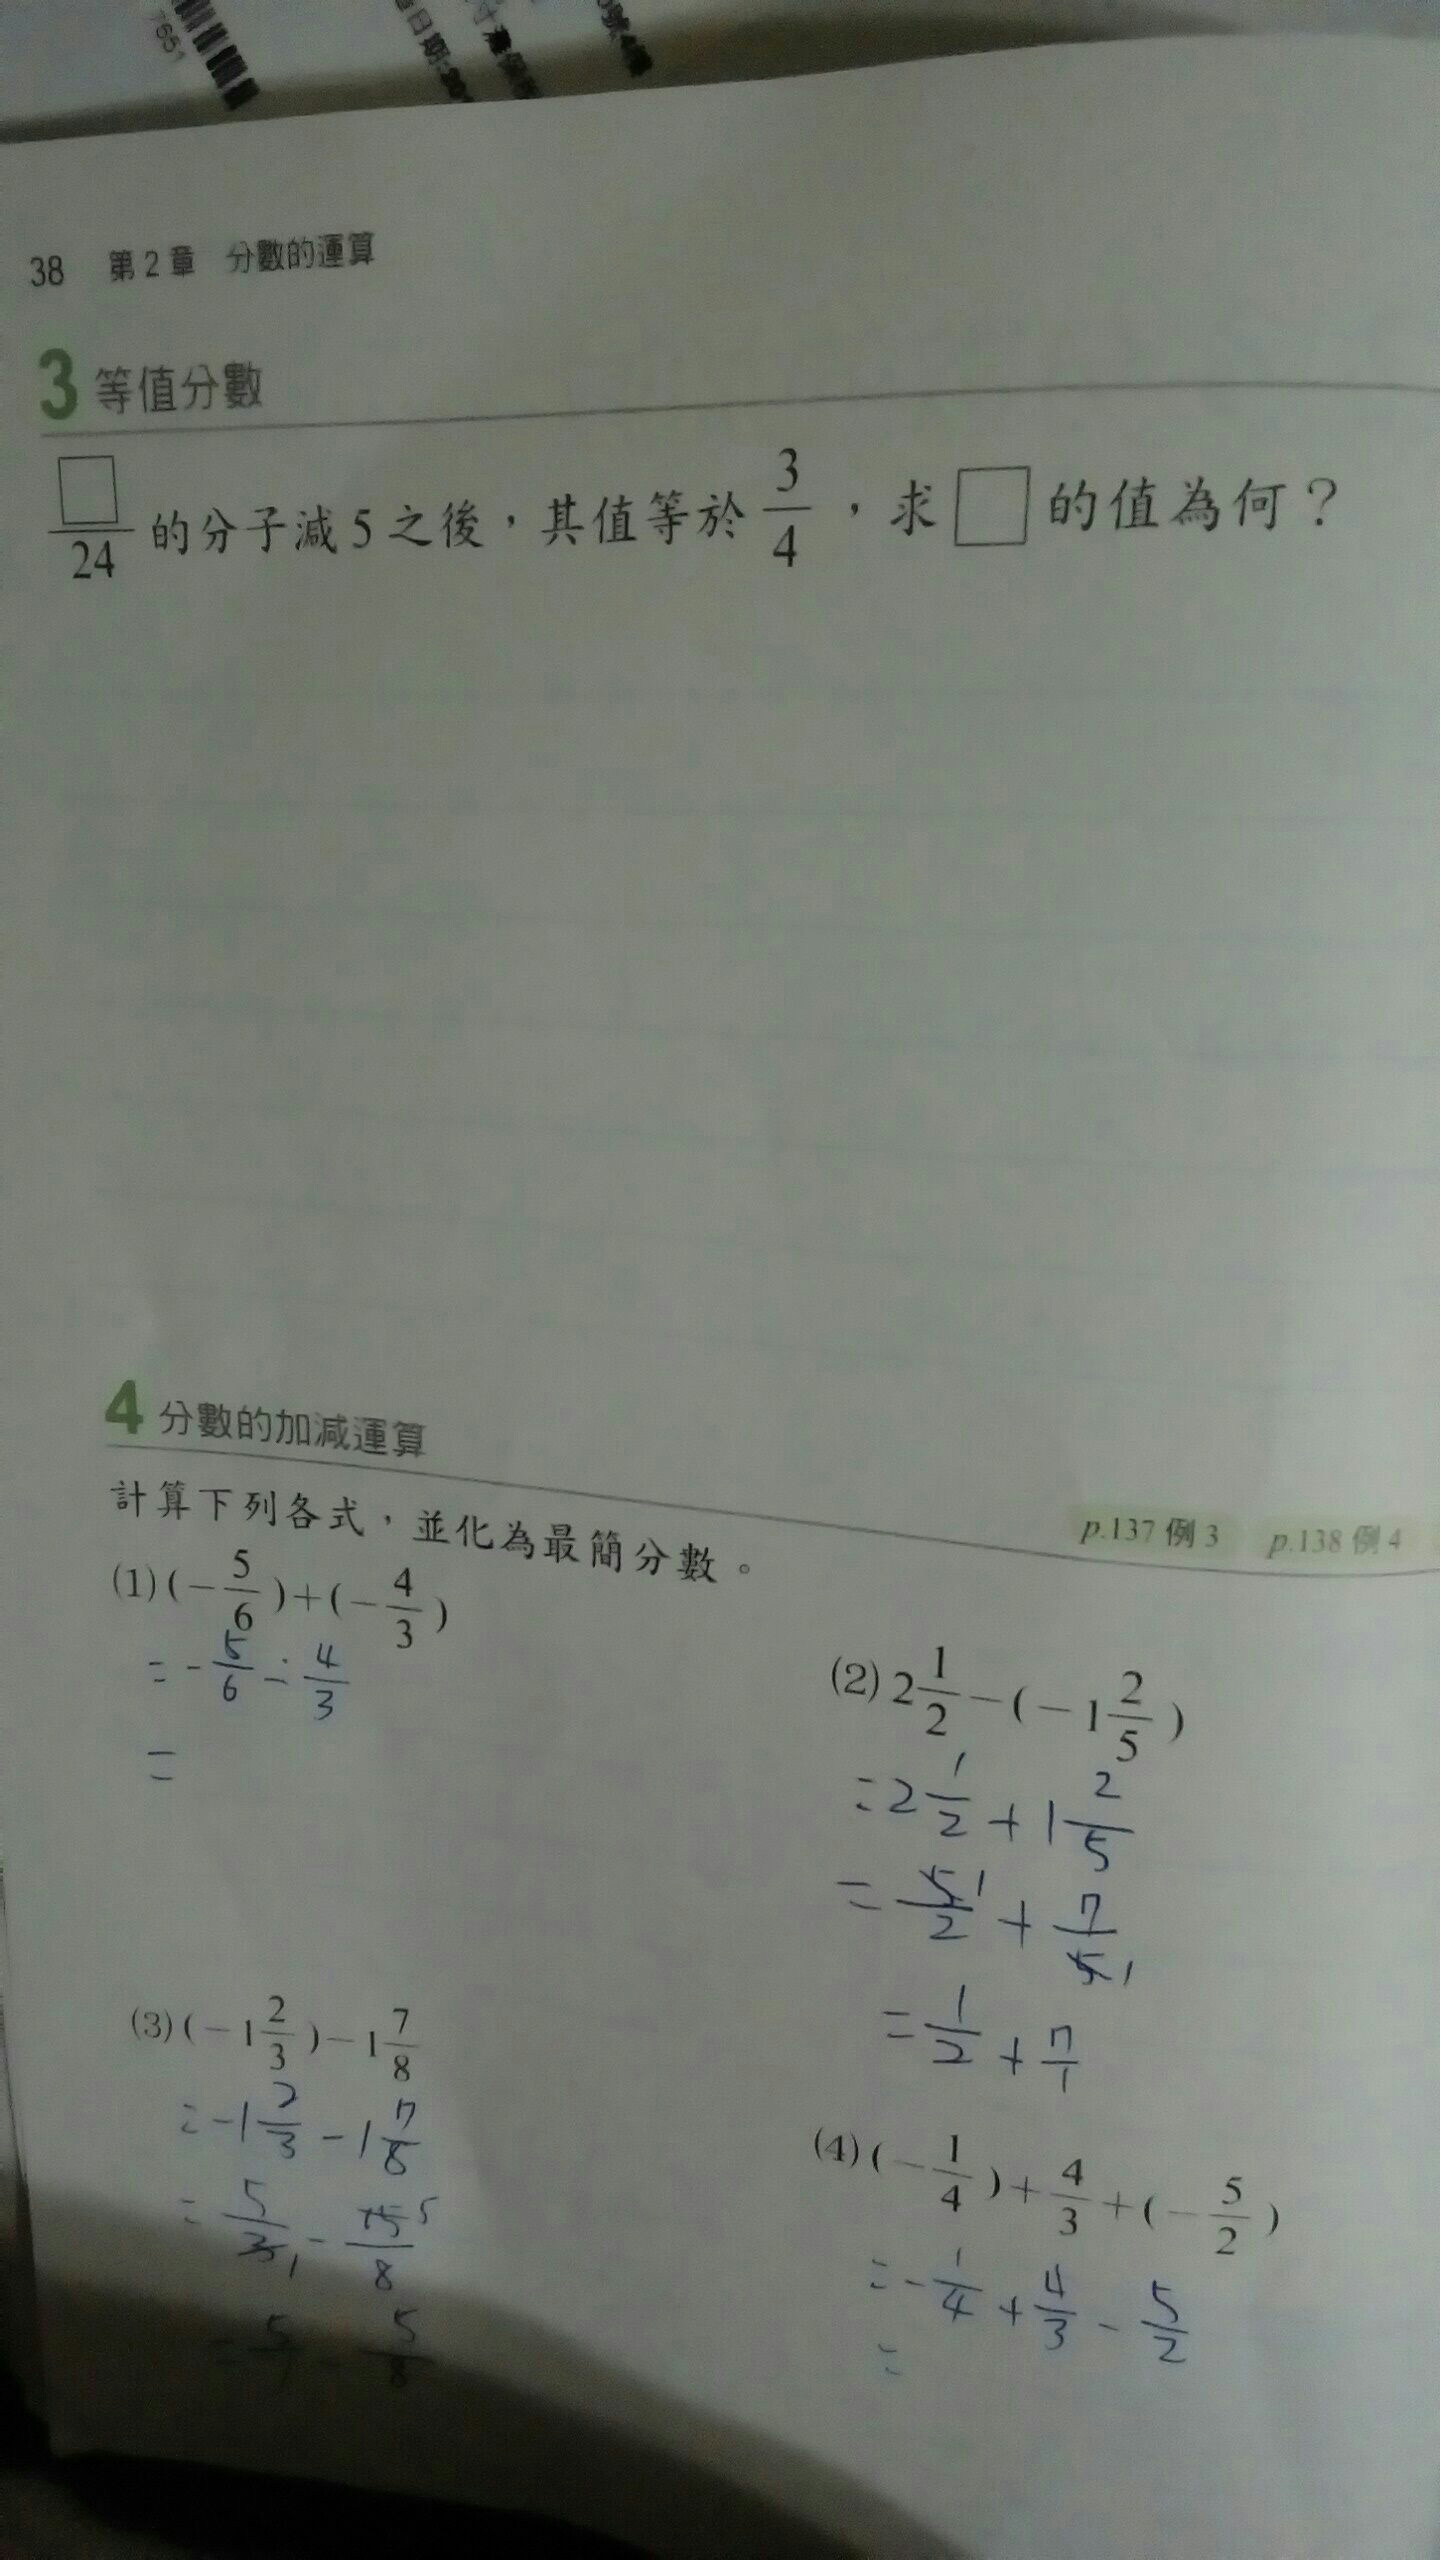 7651
日期
38 第2章 分數的運算
3 等值分數
□/24 的分子減5之後，其值等於 3/4 ，求 □ 的值為何？
4 分數的加減運算
p.137 例3 p.138 例4
計算下列各式，並化為最簡分數。
(1) (-5/6)+(-4/3)
= -5/6 - 4/3
=
(2) 2 1/2 -(-1 2/5)
= 2 1/2 + 1 2/5
= 5 1/2 + 7/5 1
= 1/2 + 7/1
(3) (-1 2/3)-1 7/8
= -1 2/3 - 1 7/8
= 5/3 1 - 15 5/8
= 5/1 - 5/8
(4) (-1/4)+4/3+(-5/2)
= -1/4 + 4/3 - 5/2
=